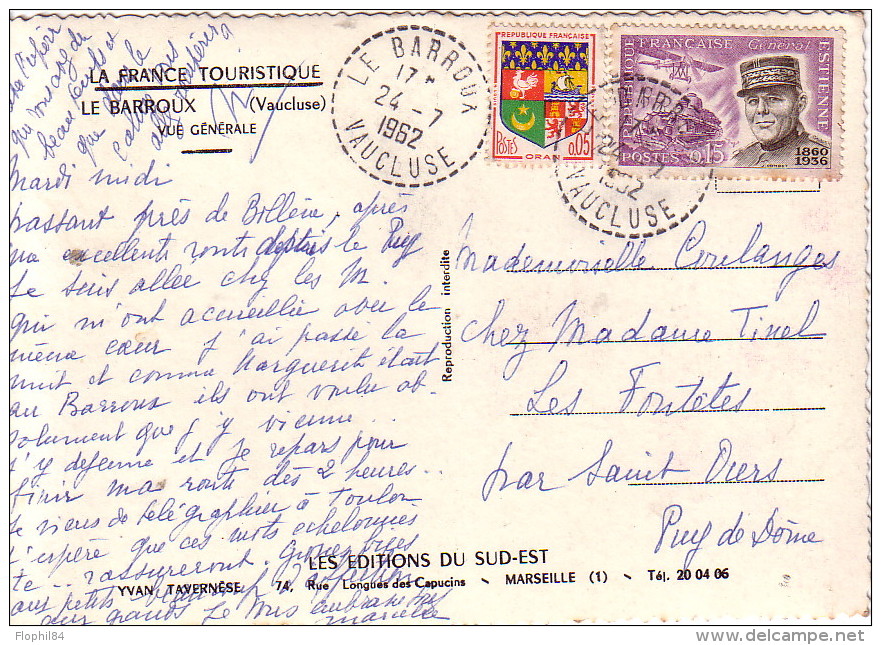 LA FRANCE TOURISTIQUE
LE BARROUX (Vaucluse)
VUE GÉNÉRALE
LE BARROUX
17 H
24 - 7
1962
VAUCLUSE
REPUBLIQUE FRANÇAISE
POSTES ORAN 0,05
REPUBLIQUE FRANÇAISE Général ESTIENNE
POSTES 0,15
1860
1936
1962
VAUCLUSE
que dans le
Mardi midi
passant près de Bollène, après
excellente route depuis le Puy
Je suis allée chez les M.
qui m'ont accueillie avec le
même cœur j'ai passé la
nuit et comme Marguerite était
au Barroux ils ont voulu ab
solument que j'y vienne
j'y déjeune et je repars pour
finir ma route dès 2 heures..
Je viens de télégraphier à Toulon
J'espère que ces mots echelonnés
te rassureront. Grosses bises
aux petits
aux grands Je vous embrasse
Marcelle
Reproduction interdite
Mademoiselle Coulanges
chez Madame Tinel
Les Fontêtes
par Saint Ours
Puy de Dôme
LES EDITIONS DU SUD-EST
YVAN TAVERNÈSE 74, Rue Longues des Capucins - MARSEILLE (1) - Tél. 20 04 06
Flophil84
©delcampe.net